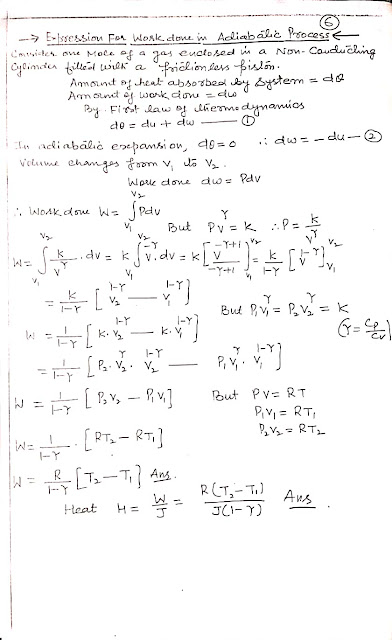 (6)
→ Expression For Work done in Adiabatic Process ←
Consider one Mole of a gas enclosed in a Non-Conducting
Cylinder fitted with a frictionless piston.
Amount of heat absorbed by System = dθ
Amount of work done = dw
By First law of thermodynamics
dθ = du + dw —— ①
In adiabatic expansion, dθ = 0 ∴ dw = - du — ②
Volume changes from V₁ to V₂.
Work done dw = Pdv
∴ Work done W = ∫_{V₁}^{V₂} Pdv But PV^γ = K ∴ P = K/V^γ
W = ∫_{V₁}^{V₂} K/V^γ . dv = K ∫_{V₁}^{V₂} V^{-γ}. dv = K [V^{-γ+1}/-γ+1]_{V₁}^{V₂} = K/1-γ [V^{1-γ}]_{V₁}^{V₂}
= K/1-γ [V₂^{1-γ} — V₁^{1-γ}] But P₁V₁^γ = P₂V₂^γ = K
W = 1/1-γ [K. V₂^{1-γ} — K. V₁^{1-γ}] (γ = Cp/Cv)
= 1/1-γ [P₂. V₂^γ. V₂^{1-γ} — P₁V₁^γ. V₁^{1-γ}]
W = 1/1-γ [P₂V₂ — P₁V₁] But PV = RT
P₁V₁ = RT₁
W = 1/1-γ . [RT₂ — RT₁] P₂V₂ = RT₂
W = R/1-γ [T₂ — T₁] Ans.
Heat H = W/J = R(T₂-T₁)/J(1-γ) Ans.